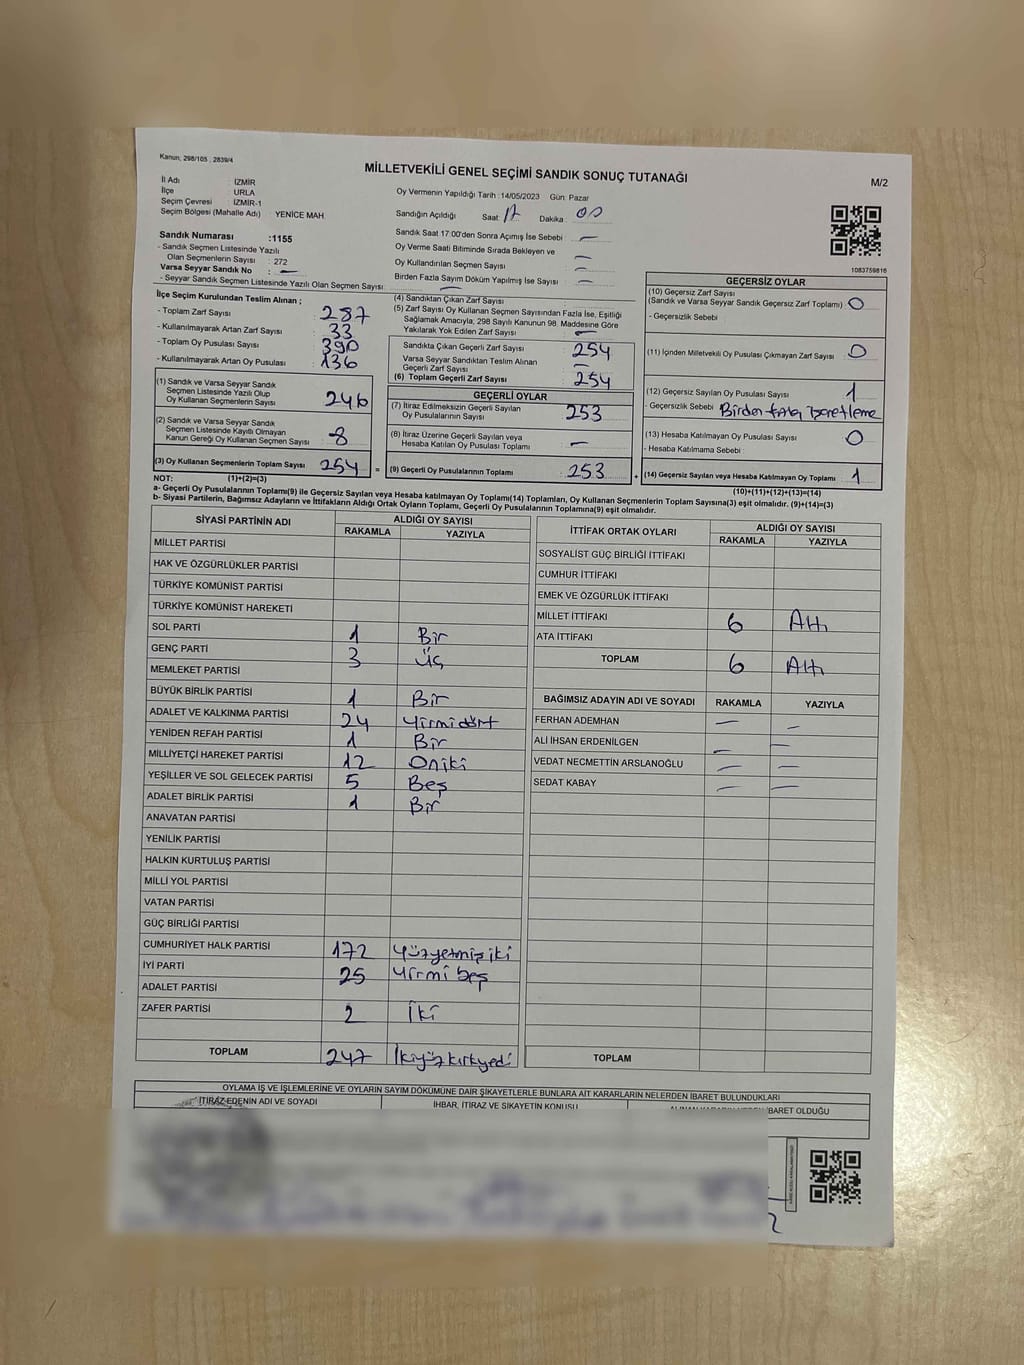 Kanun: 298/105 , 2839/4
MİLLETVEKİLİ GENEL SEÇİMİ SANDIK SONUÇ TUTANAĞI
M/2
İl Adı : İZMİR
İlçe : URLA
Seçim Çevresi : İZMİR-1
Seçim Bölgesi (Mahalle Adı) : YENİCE MAH
Oy Vermenin Yapıldığı Tarih : 14/05/2023 Gün: Pazar
Sandığın Açıldığı Saat: 17 Dakika : 00
Sandık Saat 17:00'den Sonra Açımış İse Sebebi : —
Oy Verme Saati Bitiminde Sırada Bekleyen ve
Oy Kullandırılan Seçmen Sayısı : —
Birden Fazla Sayım Döküm Yapılmış İse Sayısı : —
Sandık Numarası :1155
- Sandık Seçmen Listesinde Yazılı
Olan Seçmenlerin Sayısı : 272
Varsa Seyyar Sandık No : —
- Seyyar Sandık Seçmen Listesinde Yazılı Olan Seçmen Sayısı : —
1083759816
İlçe Seçim Kurulundan Teslim Alınan ;
- Toplam Zarf Sayısı : 287
- Kullanılmayarak Artan Zarf Sayısı : 33
- Toplam Oy Pusulası Sayısı : 390
- Kullanılmayarak Artan Oy Pusulası : 136
(1) Sandık ve Varsa Seyyar Sandık
Seçmen Listesinde Yazılı Olup
Oy Kullanan Seçmenlerin Sayısı 246
(2) Sandık ve Varsa Seyyar Sandık
Seçmen Listesinde Kayıtlı Olmayan
Kanun Gereği Oy Kullanan Seçmen Sayısı 8
(3) Oy Kullanan Seçmenlerin Toplam Sayısı 254
(1)+(2)=(3)
(4) Sandıktan Çıkan Zarf Sayısı :
(5) Zarf Sayısı Oy Kullanan Seçmen Sayısından Fazla İse, Eşitliği
Sağlamak Amacıyla; 298 Sayılı Kanunun 98. Maddesine Göre
Yakılarak Yok Edilen Zarf Sayısı : —
Sandıkta Çıkan Geçerli Zarf Sayısı 254
Varsa Seyyar Sandıktan Teslim Alınan
Geçerli Zarf Sayısı —
(6) Toplam Geçerli Zarf Sayısı 254
GEÇERLİ OYLAR
(7) İtiraz Edilmeksizin Geçerli Sayılan
Oy Pusulalarının Sayısı 253
(8) İtiraz Üzerine Geçerli Sayılan veya
Hesaba Katılan Oy Pusulası Toplamı —
= (9) Geçerli Oy Pusulalarının Toplamı 253
GEÇERSİZ OYLAR
(10) Geçersiz Zarf Sayısı
(Sandık ve Varsa Seyyar Sandık Geçersiz Zarf Toplamı) 0
- Geçersizlik Sebebi :
(11) İçinden Milletvekili Oy Pusulası Çıkmayan Zarf Sayısı 0
(12) Geçersiz Sayılan Oy Pusulası Sayısı 1
- Geçersizlik Sebebi : Birden fazla işaretleme
(13) Hesaba Katılmayan Oy Pusulası Sayısı 0
- Hesaba Katılmama Sebebi :
+ (14) Geçersiz Sayılan veya Hesaba Katılmayan Oy Toplamı 1
(10)+(11)+(12)+(13)=(14)
NOT:
a- Geçerli Oy Pusulalarının Toplamı(9) ile Geçersiz Sayılan veya Hesaba katılmayan Oy Toplamı(14) Toplamları, Oy Kullanan Seçmenlerin Toplam Sayısına(3) eşit olmalıdır. (9)+(14)=(3)
b- Siyasi Partilerin, Bağımsız Adayların ve İttifakların Aldığı Ortak Oyların Toplamı, Geçerli Oy Pusulalarının Toplamına(9) eşit olmalıdır.
SİYASİ PARTİNİN ADI ALDIĞI OY SAYISI
RAKAMLA YAZIYLA
MİLLET PARTİSİ
HAK VE ÖZGÜRLÜKLER PARTİSİ
TÜRKİYE KOMÜNİST PARTİSİ
TÜRKİYE KOMÜNİST HAREKETİ
SOL PARTİ 1 Bir
GENÇ PARTİ 3 Üç
MEMLEKET PARTİSİ
BÜYÜK BİRLİK PARTİSİ 1 Bir
ADALET VE KALKINMA PARTİSİ 24 Yirmidört
YENİDEN REFAH PARTİSİ 1 Bir
MİLLİYETÇİ HAREKET PARTİSİ 12 Oniki
YEŞİLLER VE SOL GELECEK PARTİSİ 5 Beş
ADALET BİRLİK PARTİSİ 1 Bir
ANAVATAN PARTİSİ
YENİLİK PARTİSİ
HALKIN KURTULUŞ PARTİSİ
MİLLİ YOL PARTİSİ
VATAN PARTİSİ
GÜÇ BİRLİĞİ PARTİSİ
CUMHURİYET HALK PARTİSİ 172 Yüzyetmişiki
İYİ PARTİ 25 Yirmi beş
ADALET PARTİSİ
ZAFER PARTİSİ 2 İki
TOPLAM 247 İkiyüzkırkyedi
İTTİFAK ORTAK OYLARI ALDIĞI OY SAYISI
RAKAMLA YAZIYLA
SOSYALİST GÜÇ BİRLİĞİ İTTİFAKI
CUMHUR İTTİFAKI
EMEK VE ÖZGÜRLÜK İTTİFAKI
MİLLET İTTİFAKI 6 Altı
ATA İTTİFAKI
TOPLAM 6 Altı
BAĞIMSIZ ADAYIN ADI VE SOYADI RAKAMLA YAZIYLA
FERHAN ADEMHAN — —
ALİ İHSAN ERDENİLGEN — —
VEDAT NECMETTİN ARSLANOĞLU — —
SEDAT KABAY — —
TOPLAM
OYLAMA İŞ VE İŞLEMLERİNE VE OYLARIN SAYIM DÖKÜMÜNE DAİR ŞİKAYETLERLE BUNLARA AİT KARARLARIN NELERDEN İBARET BULUNDUKLARI
İTİRAZ EDENİN ADI VE SOYADI İHBAR, İTİRAZ VE ŞİKAYETİN KONUSU İBARET OLDUĞU